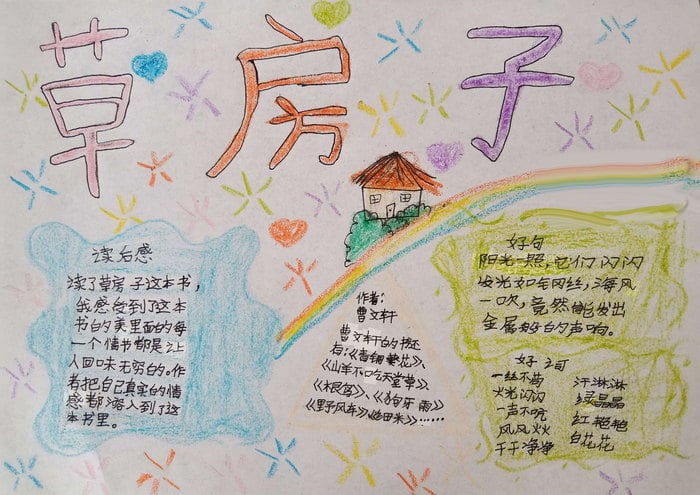 草房子
读后感
读了草房子这本书，
我感受到了这本
书的美里面的每
一个情书都是让
人回味无穷的。作
者把自己真实的情
感都溶入到了这
本书里。
作者：
曹文轩
曹文轩的书还
有：《青铜葵花》、
《山羊不吃天堂草》、
《根鸟》、《狗牙雨》
《野风车》《细米》……
好句
阳光一照，它们闪闪
发光如铜丝，海风
一吹，竟然能发出
金属般的声响。
好词
一丝不苟
火光闪闪
一声不吭
风风火火
干干净净
汗淋淋
绿晶晶
红艳艳
白花花